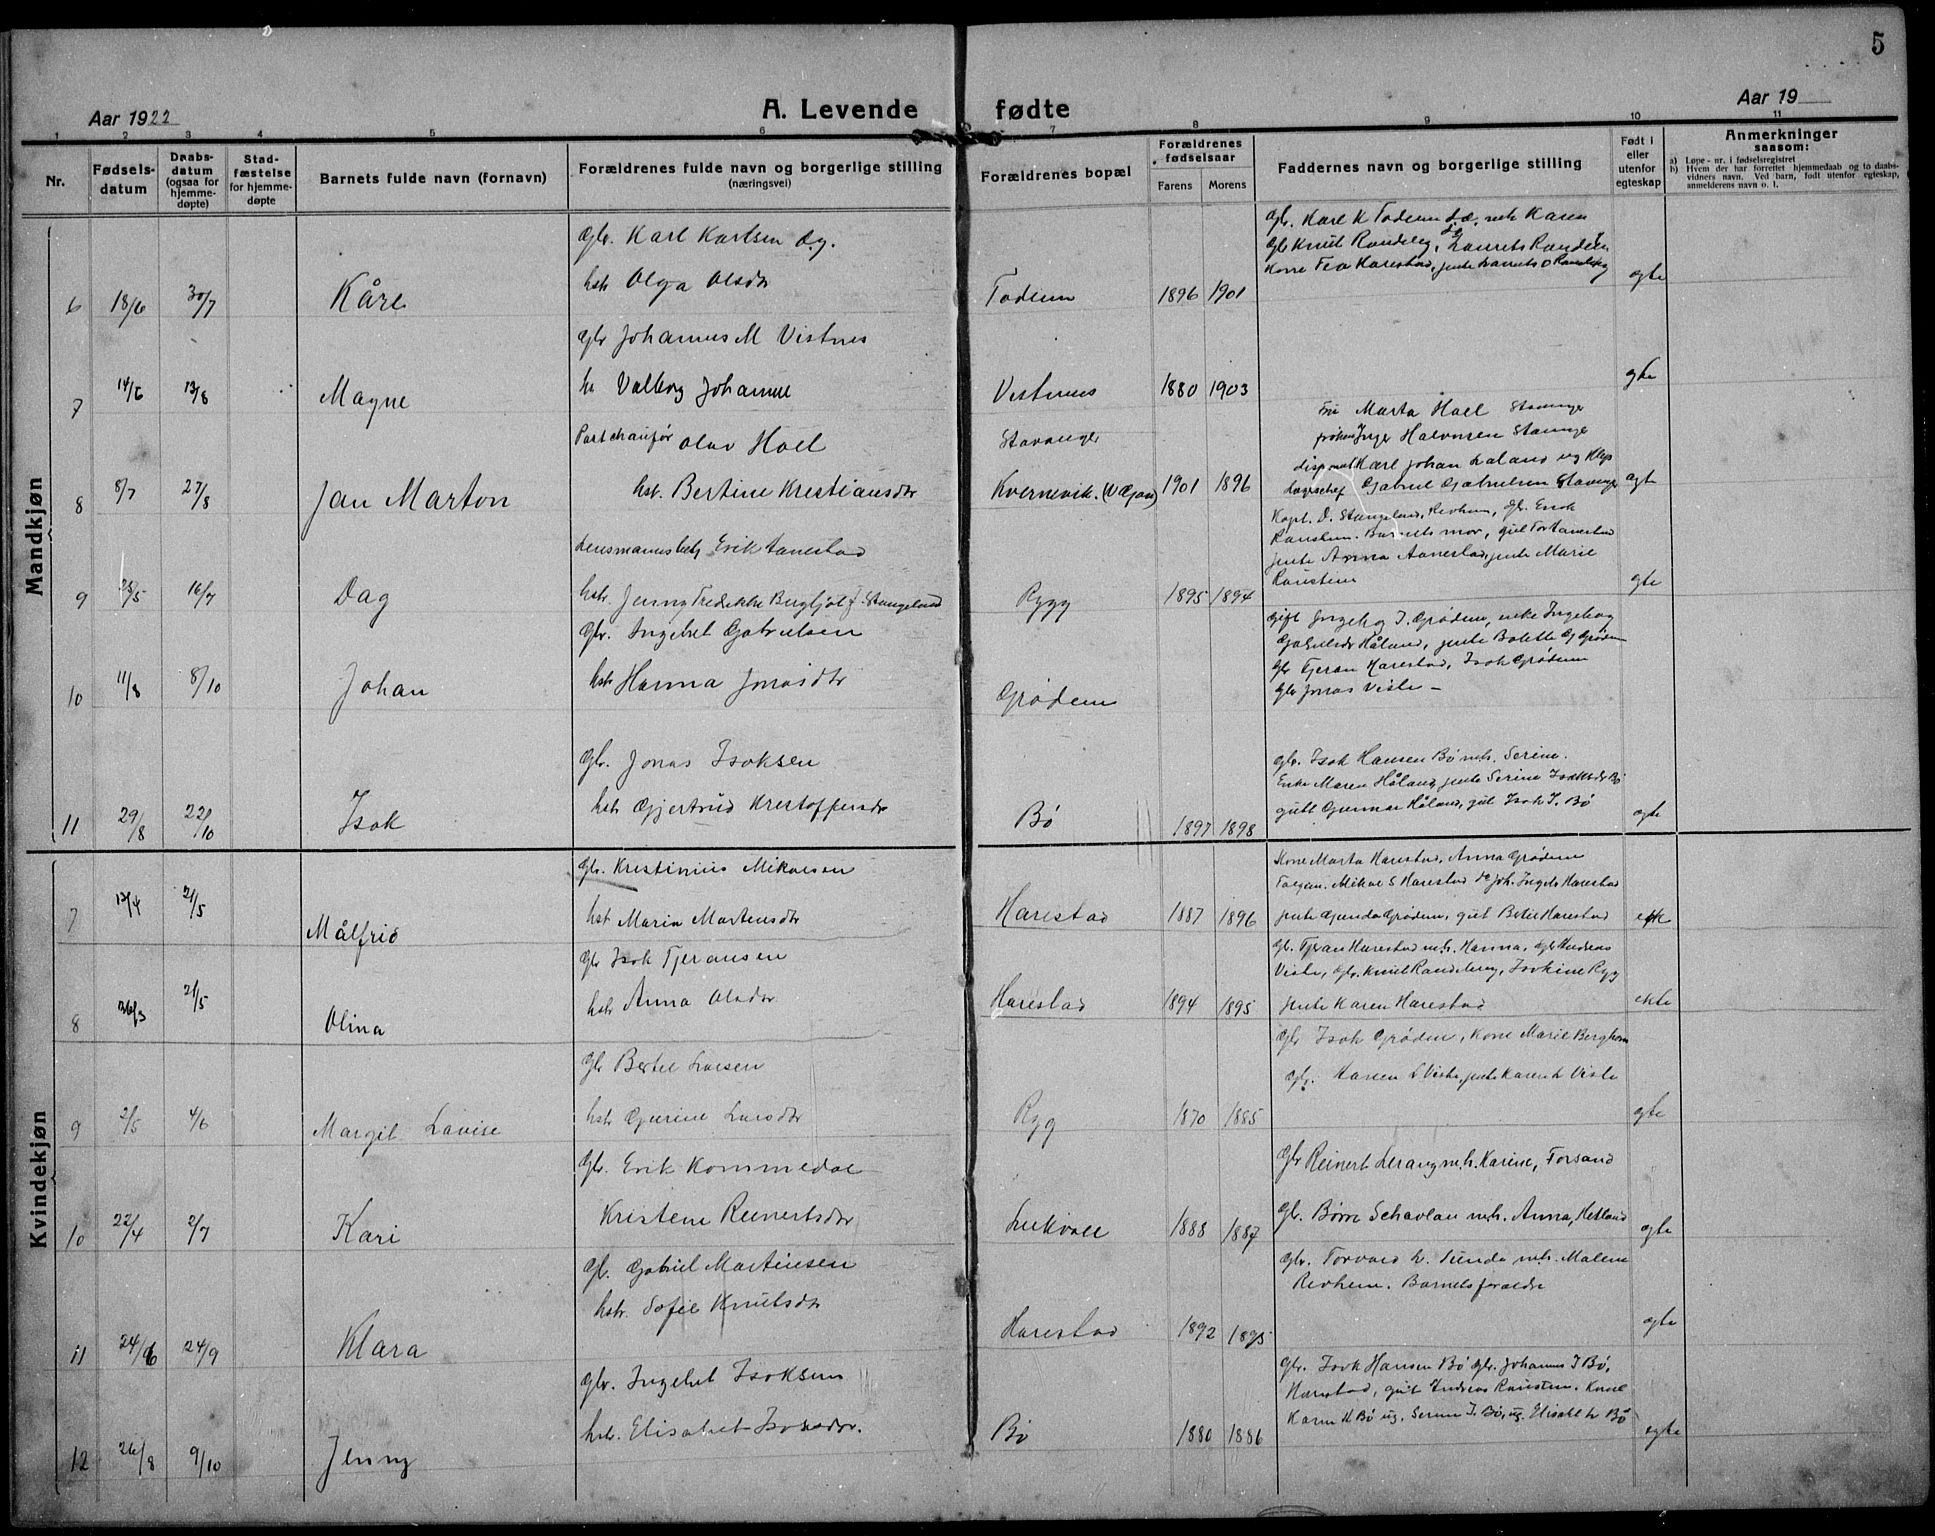 5
Aar 1922
A. Levende fødte
Aar 19
1 2 3 4 5 6 7 8 9 10 11
Nr.
Fødsels-
datum
Daabs-
datum
(ogsaa for
hjemme-
døpte)
Stad-
fæstelse
for hjemme-
døpte
Barnets fulde navn (fornavn)
Forældrenes fulde navn og borgerlige stilling
(næringsvei)
Forældrenes bopæl
Forældrenes
fødselsaar
Farens Morens
Faddernes navn og borgerlige stilling
Født i
eller
utenfor
egteskap
Anmerkninger
saasom:
a) Løpe-nr. i fødselsregistret
b) Hvem der har forrettet hjemmedaab og to daabs-
vidners navn. Ved barn, født utenfor egteskap,
anmelderens navn o. l.
Mandkjøn
6 18/6 30/7 Kåre
Gbr. Karl Karlsen og
hstr Olga Olsdtr
Todnem 1896 1901
Gbr. Karl K Todnem
Gbr Knut Randeberg,
Kone Tea Harestad,
egte
7 14/6 13/8 Magne
Gbr Johannes M Vistnes
hu Valborg Johanne
Vistnes 1880 1903
egte
8 8/7 27/8 Jan Marton
Olav Hoel
hstr. Bertine Kristiansdtr
Stavanger
Kvernevik. 1901 1896
Fru Marta Hoel Stavanger
frøken Inger Halvorsen Stavanger
Karl Johan Laland
Gabriel Gabrielsen Stavanger
egte
9 23/5 16/7 Dag
Lensmannsbetj Erik Aanestad
hstr. Jenny Fredrikke Bergljot f. Stangeland
Rygg 1895 1894
Kapt. D. Stangeland, Revheim, Gbr. Erik
Barnets mor, gut Tor Aanestad
pike Anna Aanestad, pike Marie
egte
10 11/8 8/10 Johan
Gbr. Ingebret Gabrielsen
hstr Hanna Jonasdtr
Grødem
Gift Ingeborg I. Grødem, enke Ingeborg
Håland, pike Bolette G Grødem
Gbr Tjeran Harestad, Isak Grødem
Gbr Jonas Viste –
11 29/8 22/10 Isak
Gbr. Jonas Isaksen
hstr Gjertrud Kristoffersdtr
Bø 1897 1898
Gbr. Isak Hansen Bø m.h. Serine.
Enke Maren Håland, pike Serine Isaksdtr Bø
gutt Gunnar Håland, gut Isak I. Bø
egte
Kvindekjøn
7 21/5 Målfrid
Gbr. Kristinius Mikalsen
hstr Maria Martensdtr
Harestad 1887 1896
Kone Marta Harestad, Anna Grødem
Mikal S Harestad
pike Gunda Grødem, gut Bertel Harestad
8 26/3 21/5 Olina
Gbr Isak Tjeransen
hstr Anna Olsdtr
Harestad 1894 1895
Gbr. Tjeran Harestad m.h. Hanna, Gbr Andreas
Viste, Gbr. Knut Randeberg, Isakine Ryg
pike Karen Harestad
ekte
9 2/5 4/6 Margit Lovise
Gbr Bertel Larsen
hstr Gurine Larsdtr
Ryg 1870 1885
Gbr Isak Grødem, Kone Marie Bergheim
Gbr. Hansen L Viste, pike Karen L Viste
egte
10 22/4 2/7 Kari
Gbr. Erik Kommedal
Kristene Reinertsdtr
Leikvoll 1888 1887
Gbr Reinert Lerang m.h. Karine, Forsand
Gbr. Børre Schavlan m.h. Anna, Hetland
Gbr. Torvald L. Sunde m.h. Malene
Revheim. Barnets foreldre
egte
11 24/6 24/9 Klara
Gbr. Gabriel Martinsen
hstr. Sofie Knutsdtr
Harestad 1892 1895
egte
12 26/8 9/10 Jenny
Gbr. Ingebret Isaksen
hstr. Elisabet Isaksdtr.
Bø 1880 1886
Gbr. Isak Hansen Bø Gbr. Johannes I Bø,
Harestad, gut Andreas
Karen H Bø ug. Serine I. Bø, ug. Elisabet L Bø
egte